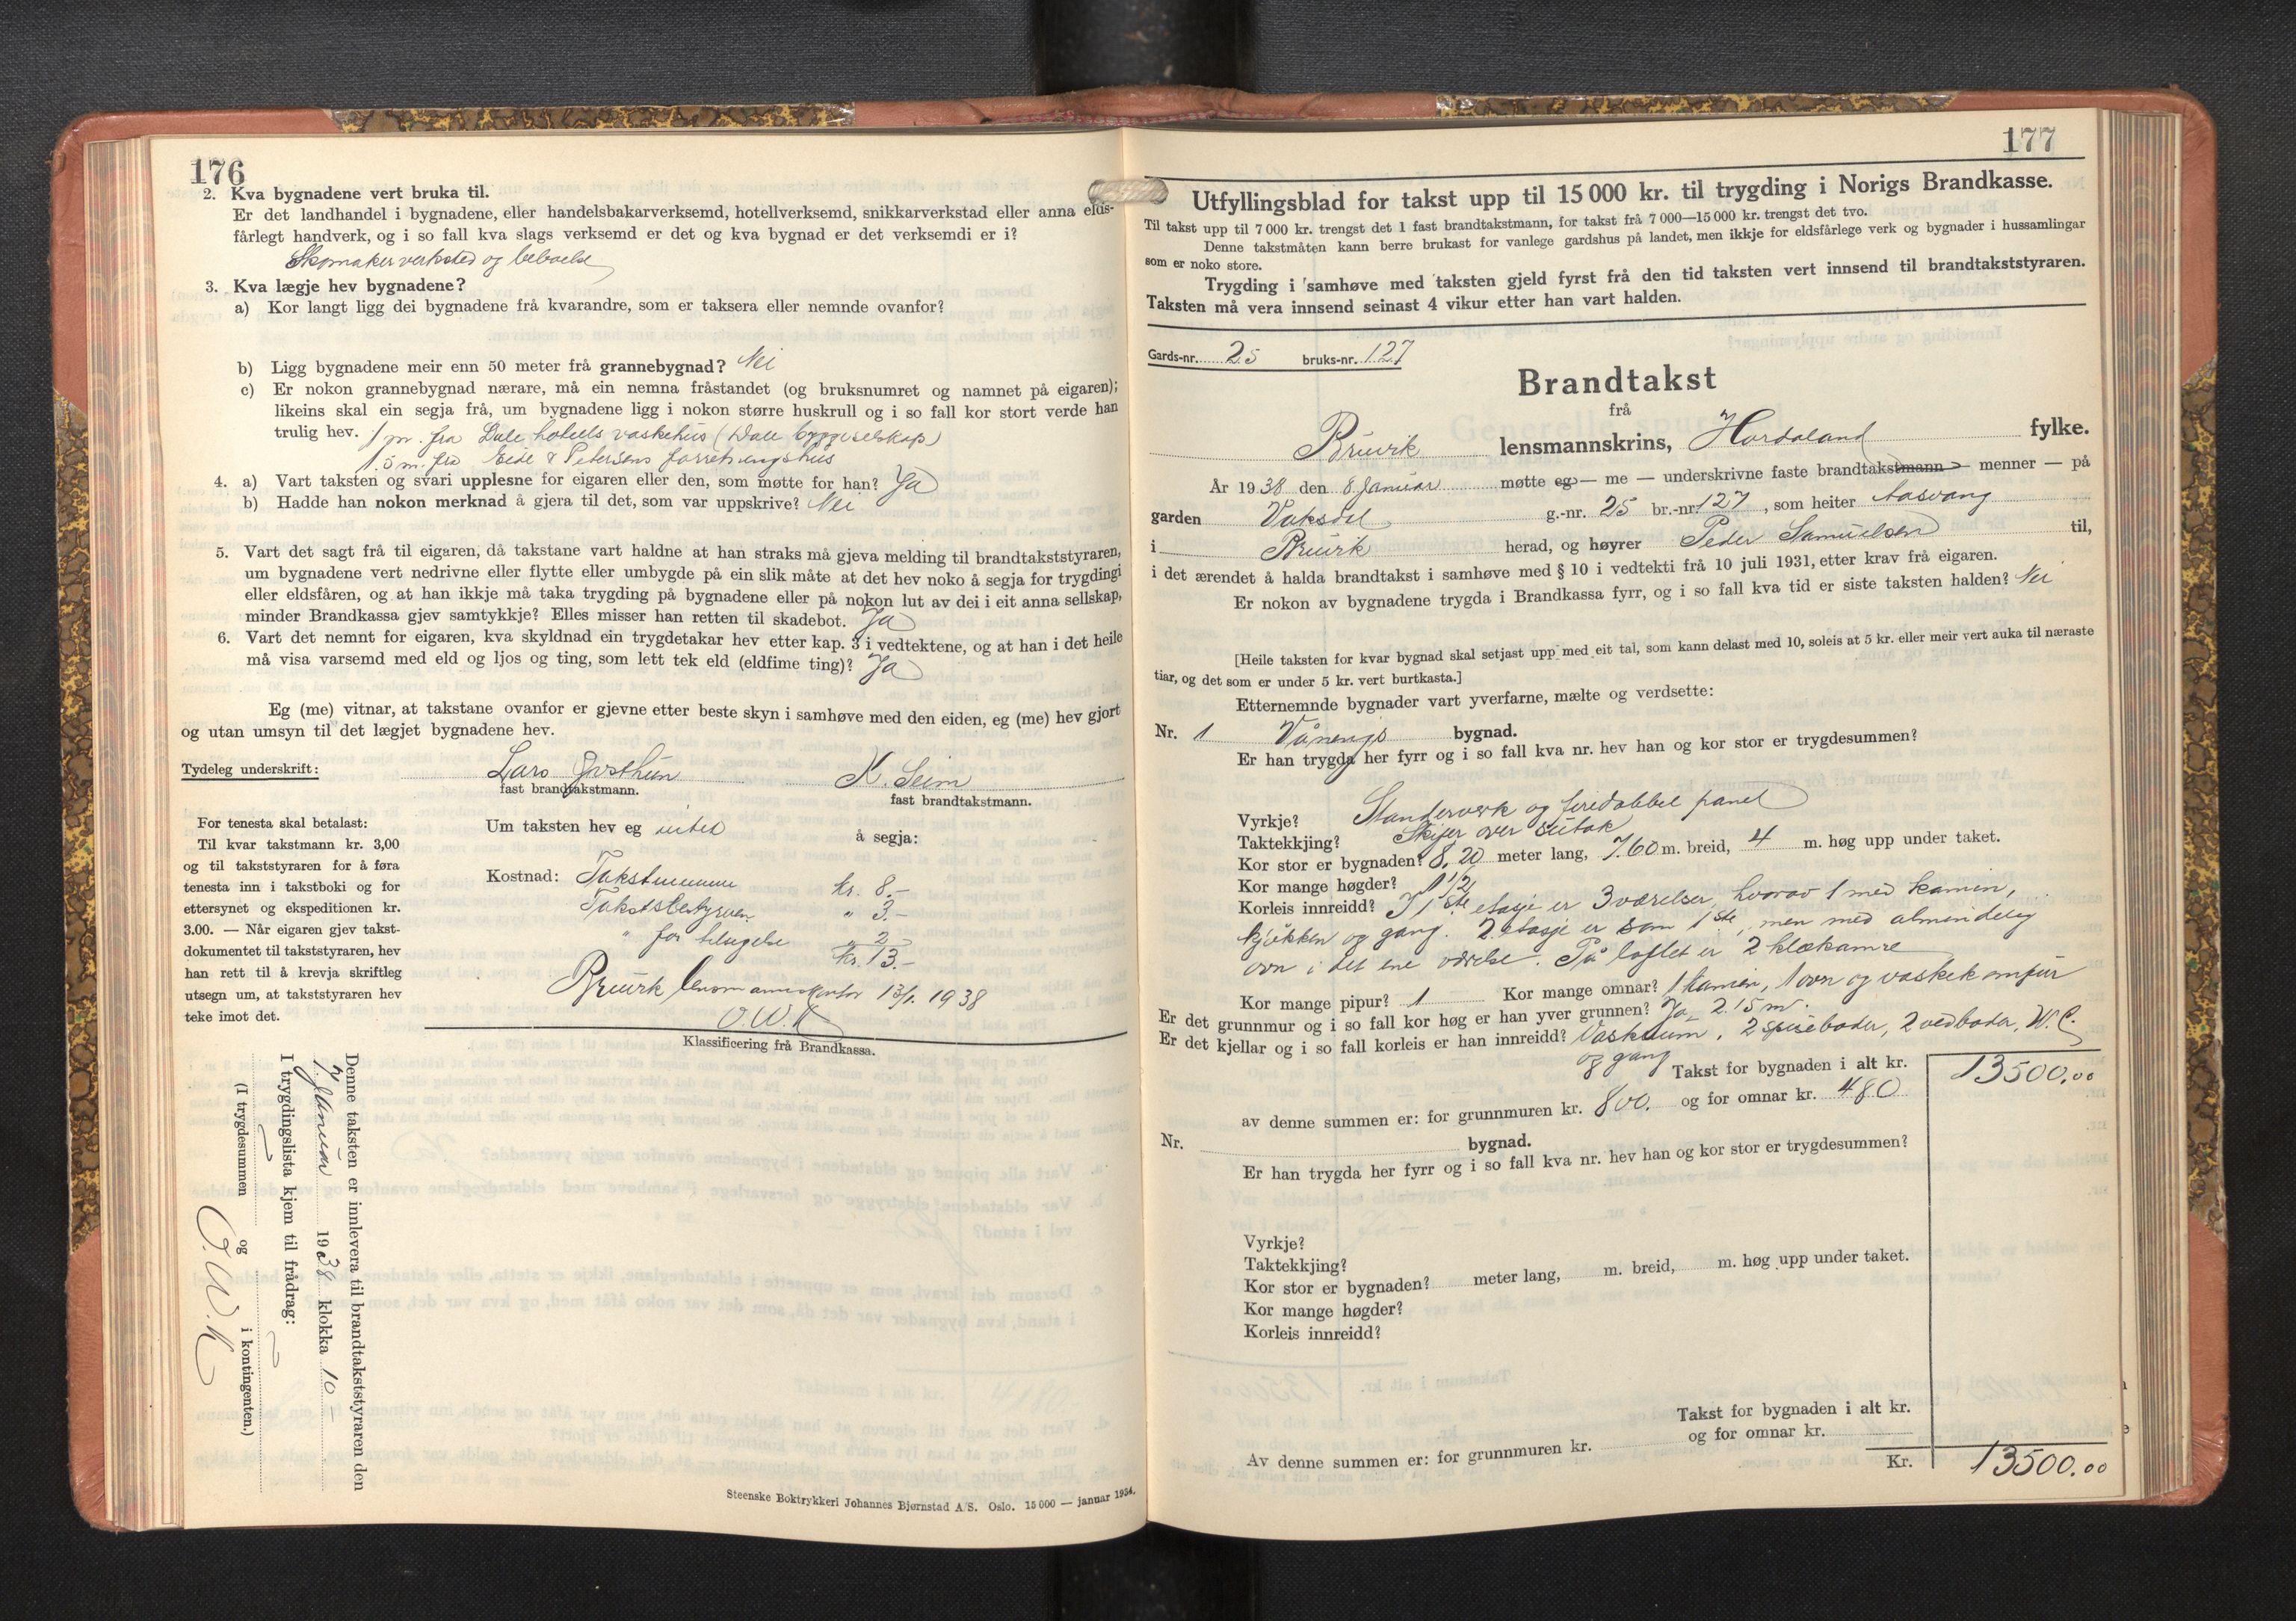 176
2. Kva bygnadene vert bruka til.
Er det landhandel i bygnadene, eller handelsbakarverksemd, hotellverksemd, snikkarverkstad eller anna elds-
fårlegt handverk, og i so fall kva slags verksemd er det og kva bygnad er det verksemdi er i?
Skomakerverksted og beboelse
3. Kva lægje hev bygnadene?
a) Kor langt ligg dei bygnadene frå kvarandre, som er taksera eller nemnde ovanfor?
b) Ligg bygnadene meir enn 50 meter frå grannebygnad? Nei
c) Er nokon grannebygnad nærare, må ein nemna fråstandet (og bruksnumret og namnet på eigaren);
likeins skal ein segja frå, um bygnadene ligg i nokon større huskrull og i so fall kor stort verde han
trulig hev. 1 m. fra Dale hotells vaskehus (Dale byggeselskap)
1.5 m. fra Eide & Petersens forretningshus
4. a) Vart taksten og svari upplesne for eigaren eller den, som møtte for han? Ja
b) Hadde han nokon merknad å gjera til det, som var uppskrive? Nei
5. Vart det sagt frå til eigaren, då takstane vart haldne at han straks må gjeva melding til brandtakststyraren,
um bygnadene vert nedrivne eller flytte eller umbygde på ein slik måte at det hev noko å segja for trygdingi
eller eldsfåren, og at han ikkje må taka trygding på bygnadene eller på nokon lut av dei i eit anna sellskap,
minder Brandkassa gjev samtykkje? Elles misser han retten til skadebot. Ja
6. Vart det nemnt for eigaren, kva skyldnad ein trygdetakar hev etter kap. 3 i vedtektene, og at han i det heile
må visa varsemd med eld og ljos og ting, som lett tek eld (eldfime ting)? Ja
Eg (me) vitnar, at takstane ovanfor er gjevne etter beste skyn i samhøve med den eiden, eg (me) hev gjort
og utan umsyn til det lægjet bygnadene hev.
Tydeleg underskrift: Lars K. Seim
fast brandtakstmann. fast brandtakstmann.
For tenesta skal betalast:
Til kvar takstmann kr. 3,00
og til takststyraren for å føra
tenesta inn i takstboki og for
ettersynet og ekspeditionen kr.
3.00. — Når eigaren gjev takst-
dokumentet til takststyraren, hev
han rett til å krevja skriftleg
utsegn um, at takststyraren hev
teke imot det.
Um taksten hev eg intet å segja:
Kostnad: Takstmennene kr. 8.-
Takstbestyreren " 3.-
" for 2
kr. 13.-
Bruvik lensmannskontor 13/1. 1938
O.W.K
Klassificering frå Brandkassa.
Denne taksten er innlevera til brandtakststyraren den
7. Januar 1938 klokka 10 -
I trygdingslista kjem til frådrag:
(I trygdesummen og i kontingenten.)
O.W.K
Steenske Boktrykkeri Johannes Bjørnstad A/S. Oslo. 15 000 — januar 1934.
177
Utfyllingsblad for takst upp til 15 000 kr. til trygding i Norigs Brandkasse.
Til takst upp til 7 000 kr. trengst det 1 fast brandtakstmann, for takst frå 7 000—15 000 kr. trengst det tvo.
Denne takstmåten kann berre brukast for vanlege gardshus på landet, men ikkje for eldsfårlege verk og bygnader i hussamlingar
som er noko store.
Trygding i samhøve med taksten gjeld fyrst frå den tid taksten vert innsend til brandtakststyraren.
Taksten må vera innsend seinast 4 vikur etter han vart halden.
Gards-nr. 25 bruks-nr. 127
Brandtakst
frå
Bruvik lensmannskrins, Hordaland fylke.
År 1938 den 8 Januar møtte eg — me — underskrivne faste brandtakstmann — menner — på
garden Vaksdal g.-nr. 25 br.-nr. 127, som heiter Aasvang
i Bruvik herad, og høyrer Peder Samuelsen til,
i det ærendet å halda brandtakst i samhøve med § 10 i vedtekti frå 10 juli 1931, etter krav frå eigaren.
Er nokon av bygnadene trygda i Brandkassa fyrr, og i so fall kva tid er siste taksten halden? Nei
[Heile taksten for kvar bygnad skal setjast upp med eit tal, som kann delast med 10, soleis at 5 kr. eller meir vert auka til næraste
tiar, og det som er under 5 kr. vert burtkasta.]
Etternemnde bygnader vart yverfarne, mælte og verdsette:
Nr. 1 Vånings bygnad.
Er han trygda her fyrr og i so fall kva nr. hev han og kor stor er trygdesummen?
Vyrkje? Standerverk og firedobbel panel
Taktekkjing? Skifer over sutak
Kor stor er bygnaden? 8,20 meter lang, 7.60 m. breid, 4 m. høg upp under taket.
Kor mange høgder? 1 1/2
Korleis innreidd? I 1ste etasje er 3 værelser, hvorav 1 med kamin,
kjøkken og gang. 2. etasje er som 1ste, men med almindelig
ovn i det ene værelse. På loftet er 2 klækamre
Kor mange pipur? 1 Kor mange omnar? 1 kamin, 1 ovn og vaskekomfür
Er det grunnmur og i so fall kor høg er han yver grunnen? Ja 2.15 m.
Er det kjellar og i so fall korleis er han innreidd? Vaskerum, 2 spiseboder, 2 vedboder, W.C.
og gang
Takst for bygnaden i alt kr. 13500.00
av denne summen er: for grunnmuren kr. 800. og for omnar kr. 480
Nr. bygnad.
Er han trygda her fyrr og i so fall kva nr. hev han og kor stor er trygdesummen?
Vyrkje?
Taktekkjing?
Kor stor er bygnaden? meter lang, m. breid, m. høg upp under taket.
Kor mange høgder?
Korleis innreidd?
Takst for bygnaden i alt kr.
Av denne summen er: for grunnmuren kr. og for omnar kr.
Kr. 13500.00